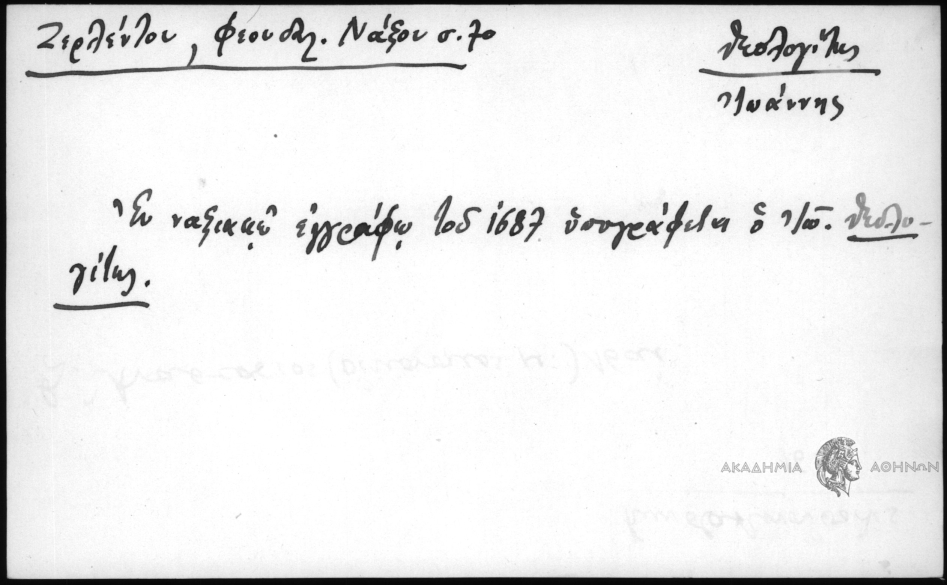 Ζερλέντου, Φεουδαλ. Νάξου σ. 70
Θεολογίτης
Ἰωάννης
Ἐν ναξιακῷ ἐγγράφῳ τοῦ 1687 ὑπογράφεται ὁ Ἰω. Θεολο-
γίτης.
ΑΚΑΔΗΜΙΑ ΑΘΗΝΩΝ